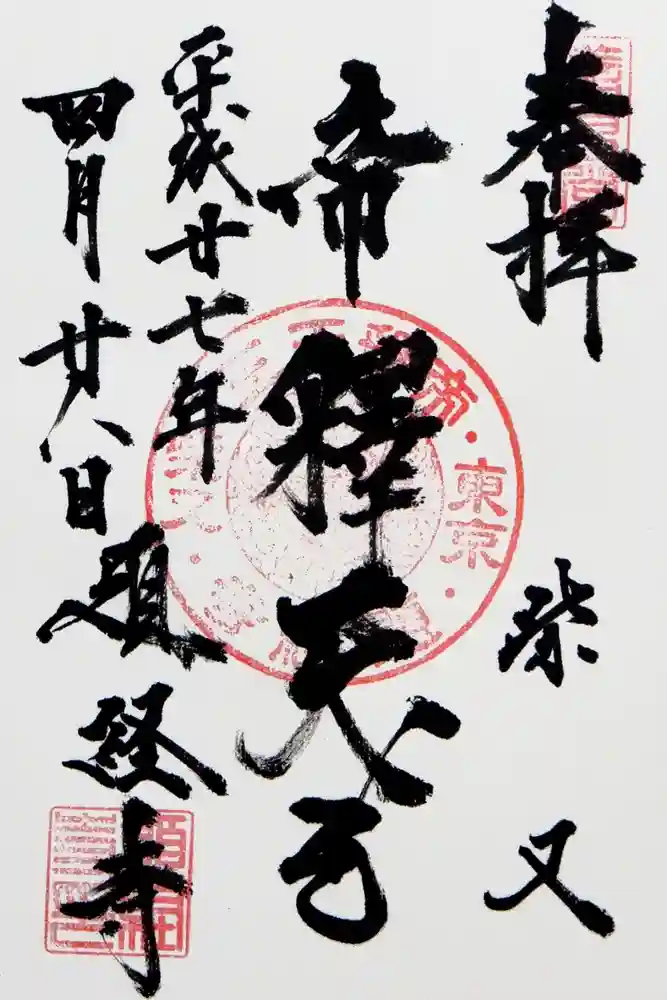 奉拝
柴又
帝釋天王
平成廿七年
四月廿八日
題経寺
東京
帝